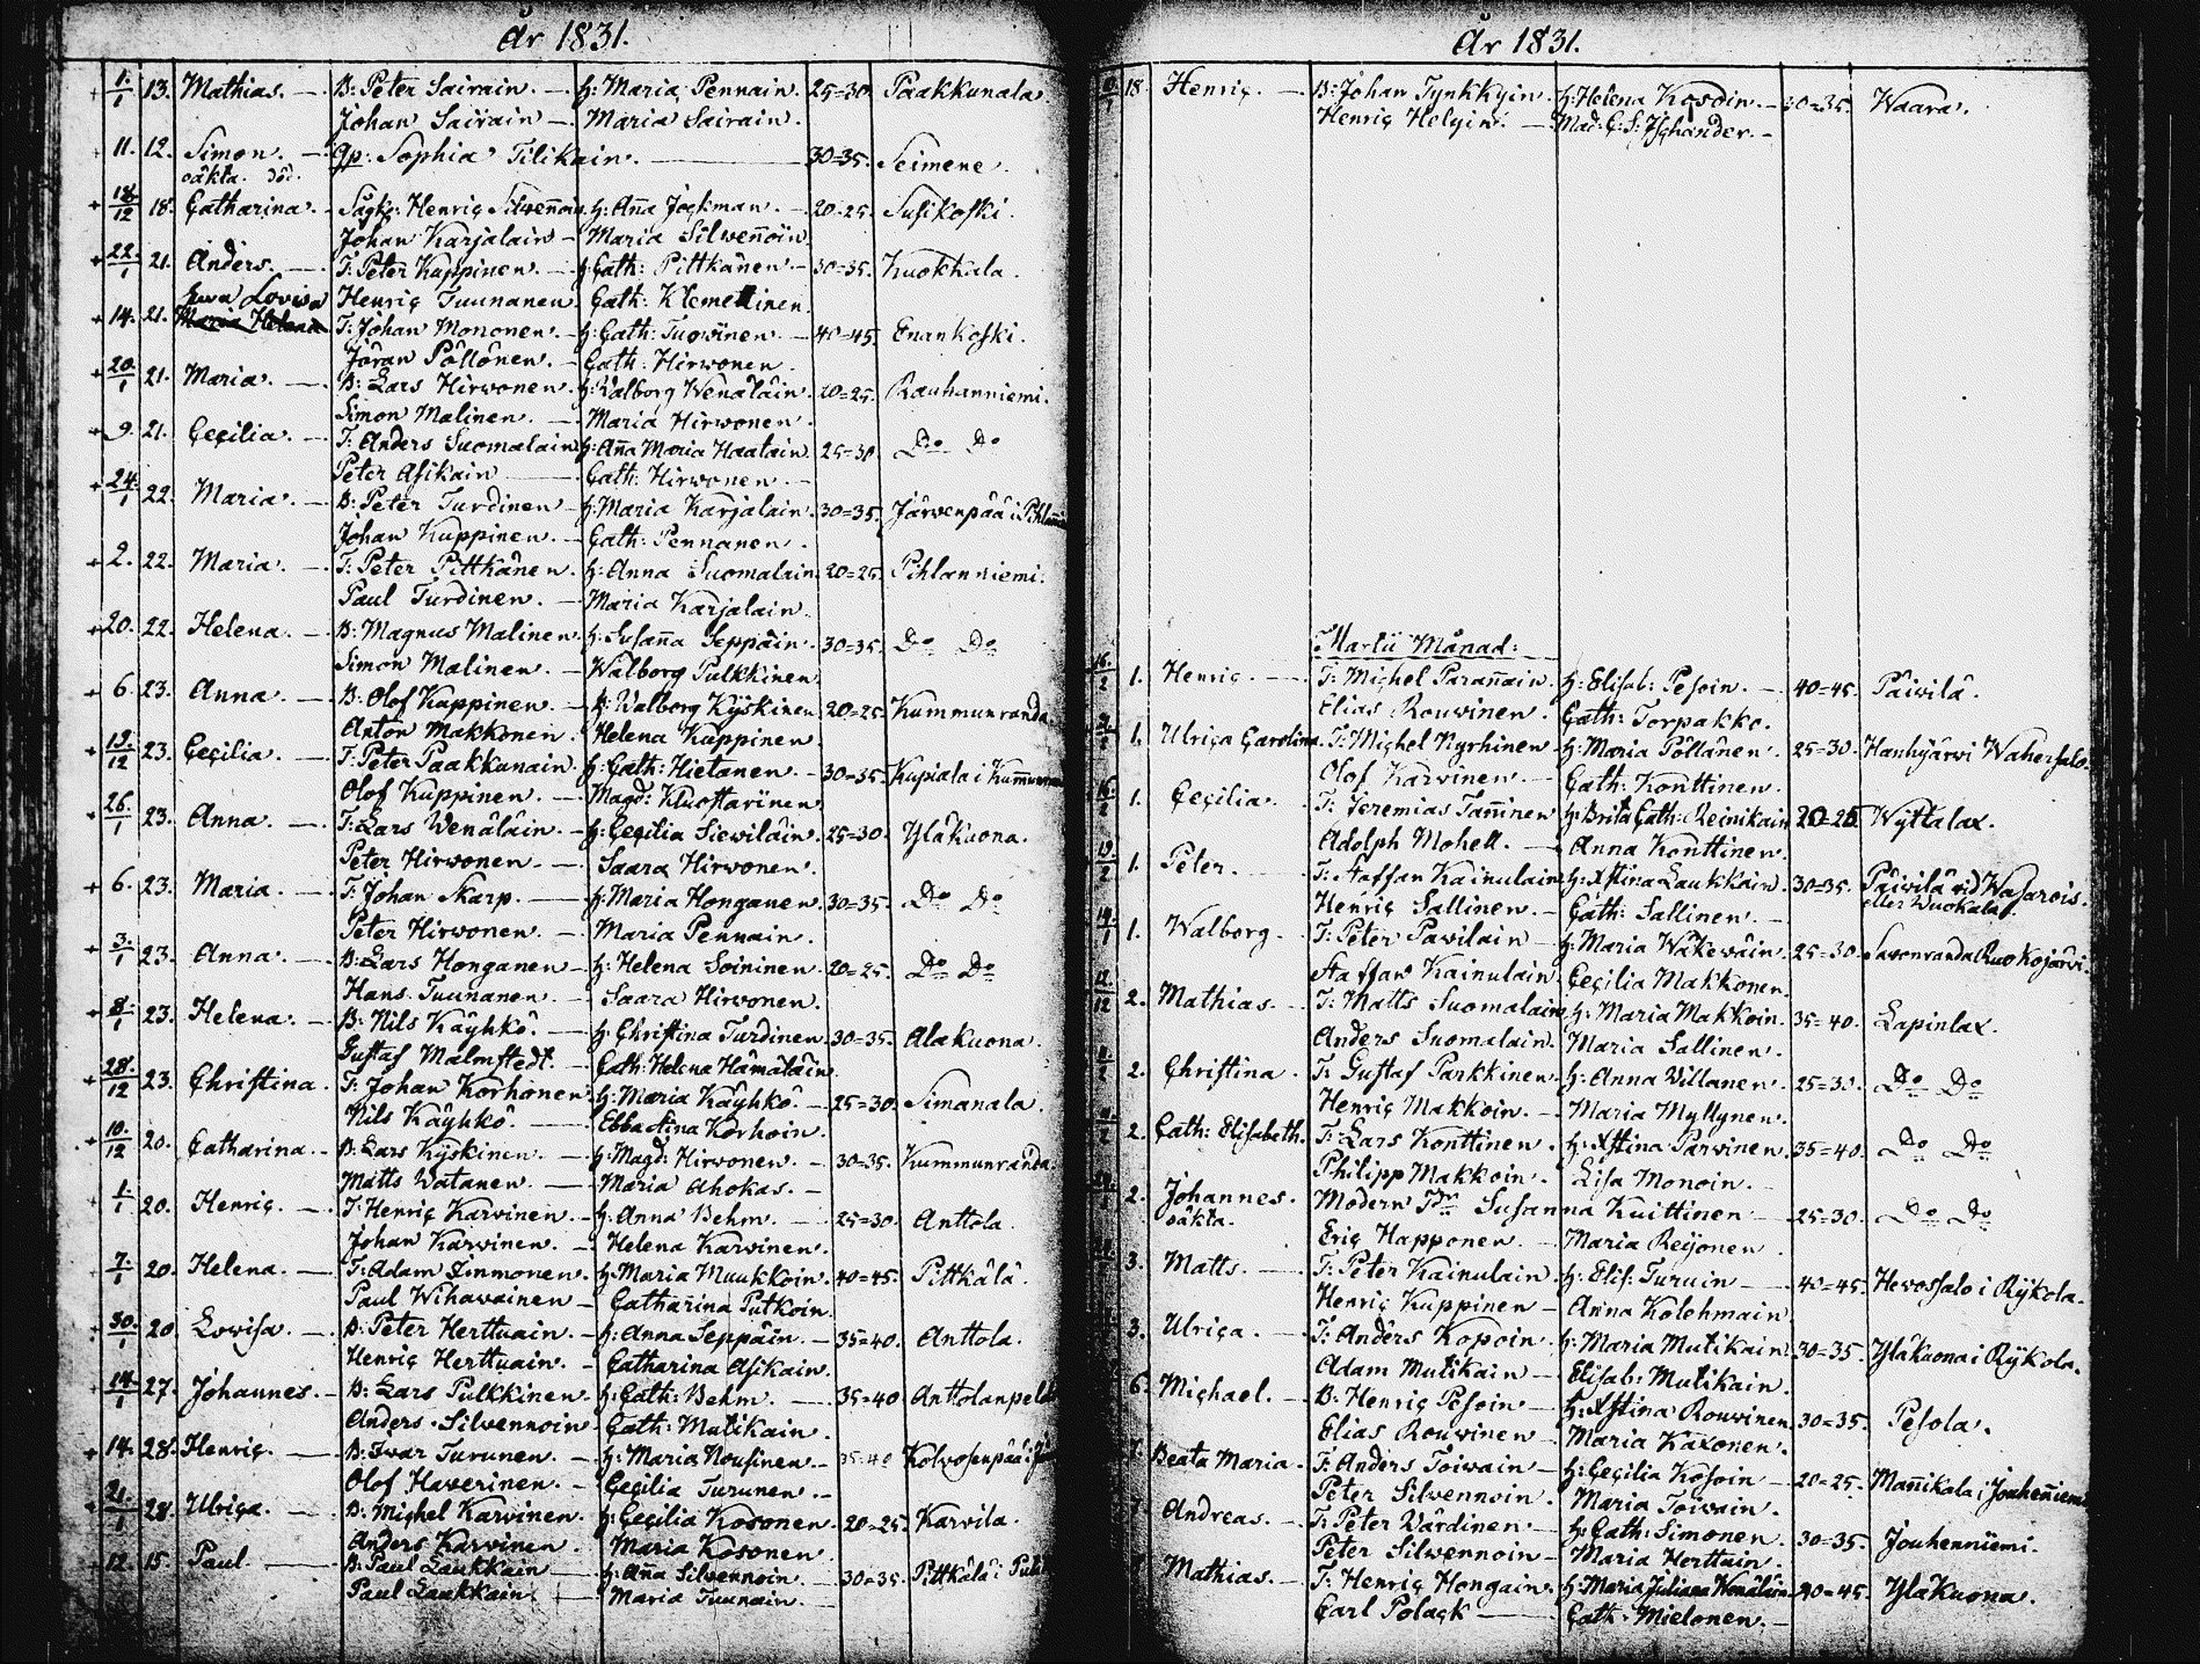 År 1831.
1/1 13. Mathias. — B: Peter Sairain. — H: Maria Pennain. 25=30. Paakkunala.
Johan Sairain — Maria Sairain.
11. 12. Simon. — Qp: Sophia Tilikain. — 30=35. Seimene.
oäkta. död.
18/12 18. Catharina. — Henric Silwenoin H: Aña Jockman. — 20=25. Susikoski.
Johan Karjalain — Maria Silwenoin.
22/1 21. Anders. — T: Peter Kuppinen. — H: Cath: Pittkänen — 30=35. Kuokkala.
Henric Tuunanen. Cath: Klemettinen.
Ewa Lovisa
14. 21. Maria Helena T: Johan Mononen. — H: Cath: Tuowinen. — 40=45. Enankoski.
Jöran Pöllönen. — Cath: Hirwonen.
20/1 21. Maria. — B: Lars Hirwonen. H: Walborg Wenäläin. 20=25. Rauhanniemi.
Simon Malinen. — Maria Hirwonen.
9. 21. Cecilia. — T: Anders Suomalain H: Aña Maria Haatain. 25=30 Do Do
Peter Asikain — Cath: Hirwonen. —
24/1 22. Maria. — B: Peter Turdinen — H: Maria Karjalain. 30=35. Järwenpää i
Johan Kuppinen. — Cath: Pennanen.
2. 22. Maria. — T: Peter Pittkänen. H: Anna Suomalain. 20=25. Pihlanniemi.
Paul Turdinen. — Maria Karjalain.
20. 22. Helena. — B: Magnus Malinen. H: Susaña Seppäin. 30=35. Do Do
Simon Malinen. — Walborg Pulkkinen.
6. 23. Anna. — B: Olof Kuppinen. — H: Walborg Kyskinen 20=25. Kummunranda.
Anton Makkonen. Helena Kuppinen.
19/12 23. Cecilia. — T: Peter Paakkunain. H: Cath: Hietanen. — 30=35. Kupiala i
Olof Kuppinen. — Magd: Kluottarinen.
26/1 23. Anna. — T: Lars Wenäläin. — H: Cecilia Siewiläin. 25=30. Yläkuona.
Peter Hirwonen. — Saara Hirwonen.
6. 23. Maria. — T: Johan Skarp. — H: Maria Honganen. 30=35. Do Do
Peter Hirwonen. — Maria Pennain.
3/1 23. Anna. — B: Lars Honganen — H: Helena Soininen. 20=25. Do Do
Hans Tuunanen. — Saara Hirwonen.
8/1 23. Helena. — B: Nils Käyhkö. — H: Christina Turdinen. 30=35. Alakuona.
Gustaf Malmstedt. — Cath: Helena Hämäläin.
28/12 23. Christina. T: Johan Korhonen. H: Maria Käyhkö. — 25=30. Simanala.
Nils Käyhkö. — Ebba Stina Korhoin.
10/12 20. Catharina. — B: Lars Kyskinen. — H: Magd: Hirwonen. — 30=35. Kummunranda.
Matts Watanen. — Maria Ahokas. —
1/1 20. Henric. — T: Henric Karwinen. — H: Anna Behm. — 25=30. Anttola.
Johan Karwinen. — Helena Karwinen.
7/1 20. Helena. — T: Adam Simmonen. H: Maria Muukkoin. 40=45. Pittkälä.
Paul Wihawainen — Catharina Putkoin.
30/1 20 Lovisa. — B: Peter Herttuain. — H: Anna Seppäin. — 35=40. Anttola.
Henric Herttuain. — Catharina Asikain.
14/1 27. Johannes. — B: Lars Pulkkinen. H: Cath: Behm. — 35=40 Anttolanpeldo
Anders Silwennoin Cath: Mutikain.
14. 28. Henric. — B: Iwar Turunen. — H: Maria Nousinen. — 35=40 Kolvosenpää i
Olof Haverinen. — Cecilia Turunen. —
21/1 28. Ulrica. — B: Michel Karwinen. H: Cecilia Kosonen. 20=25. Karvila.
Anders Karwinen. Maria Kosonen.
12. 15. Paul — B: Paul Laukkain — H: Aña Silwennoin. — 30=35. Pittkälä i
Paul Laukkain. — Maria Tuunain.
År 1831.
18. Henric. — B: Johan Tynkkyin. H: Helena Kosoin. — 30=35. Waara.
Henric Helyin. — Mad: C: S: —
Martii Månad:
16/2 1. Henric. — T: Michel Parañain. H: Elisab: Pesoin. — 40=45. Päiwilä.
Elias Rouwinen. Cath: Torpakko.
1. Ulrica Carolina. T: Michel Nyrhinen — H: Maria Pöllänen. 25=30. Hanhijärwi Wahersalo.
Olof Karwinen. — Cath: Konttinen.
16/2 1. Cecilia. T: Jeremias Tam̃inen H: Brita Cath: Reinikain 20=25 Wyttalax.
Adolph Mohell. — Anna Konttinen.
19/2 1. Peter. T: Staffan Kainulain H: Xstina Laukkain. 30=35. Päiwilä vid Wasarois.
eller Wuokala.
Henric Sallinen. — Cath: Sallinen. —
14/1 1. Walborg. T: Peter Pawilain — H: Maria Wäkewäin. 25=30. Savonranda Ruokojärvi.
Staffan Kainulain Cecilia Makkonen.
12/12 2. Mathias. T: Matts Suomalain H: Maria Makkoin. 35=40. Lapinlax.
Anders Suomalain. Maria Sallinen.
2. Christina. T: Gustaf Parkkinen. H: Anna Willanen. 25=30. Do Do
Henric Makkoin. — Maria Myllynen.
2. Cath: Elisabeth. T: Lars Konttinen. H: Xstina Parwinen. 35=40. Do Do
Philipp Makkoin. Lisa Monoin.
2. Johannes. Modern Susanna Kuittinen — 25=30. Do Do
oäkta. Eric Happonen. — Maria Reijonen.
3. Matts. — T: Peter Kainulain. H: Elis: Turuin — 40=45. Hevossalo i Rykola.
Henric Kuppinen — Anna Kolehmain.
3. Ulrica. — T: Anders Kopoin. H: Maria Mutikain. 30=35. Yläkuona i Rykola.
Adam Mutikain — Elisab: Mutikain.
6. Michael. — B: Henric Pesoin — H: Xstina Rouwinen 30=35. Pesola.
Elias Rouwinen — Maria Kaxonen.
7. Beata Maria. T: Anders Toiwain — H: Cecilia Kosoin — 20=25. Mañikala i Jouheñiemi
Peter Silwennoin. Maria Toiwain.
7. Andreas. — T: Peter Wärdinen — H: Cath: Simonen. 30=35. Jouhenniemi.
Peter Silwennoin — Maria Herttuin.
Mathias. — T: Henric Hongain. H: Maria Juliana Wenäläin 40=45. Yläkuona.
Carl Polack — Cath: Mielonen. —